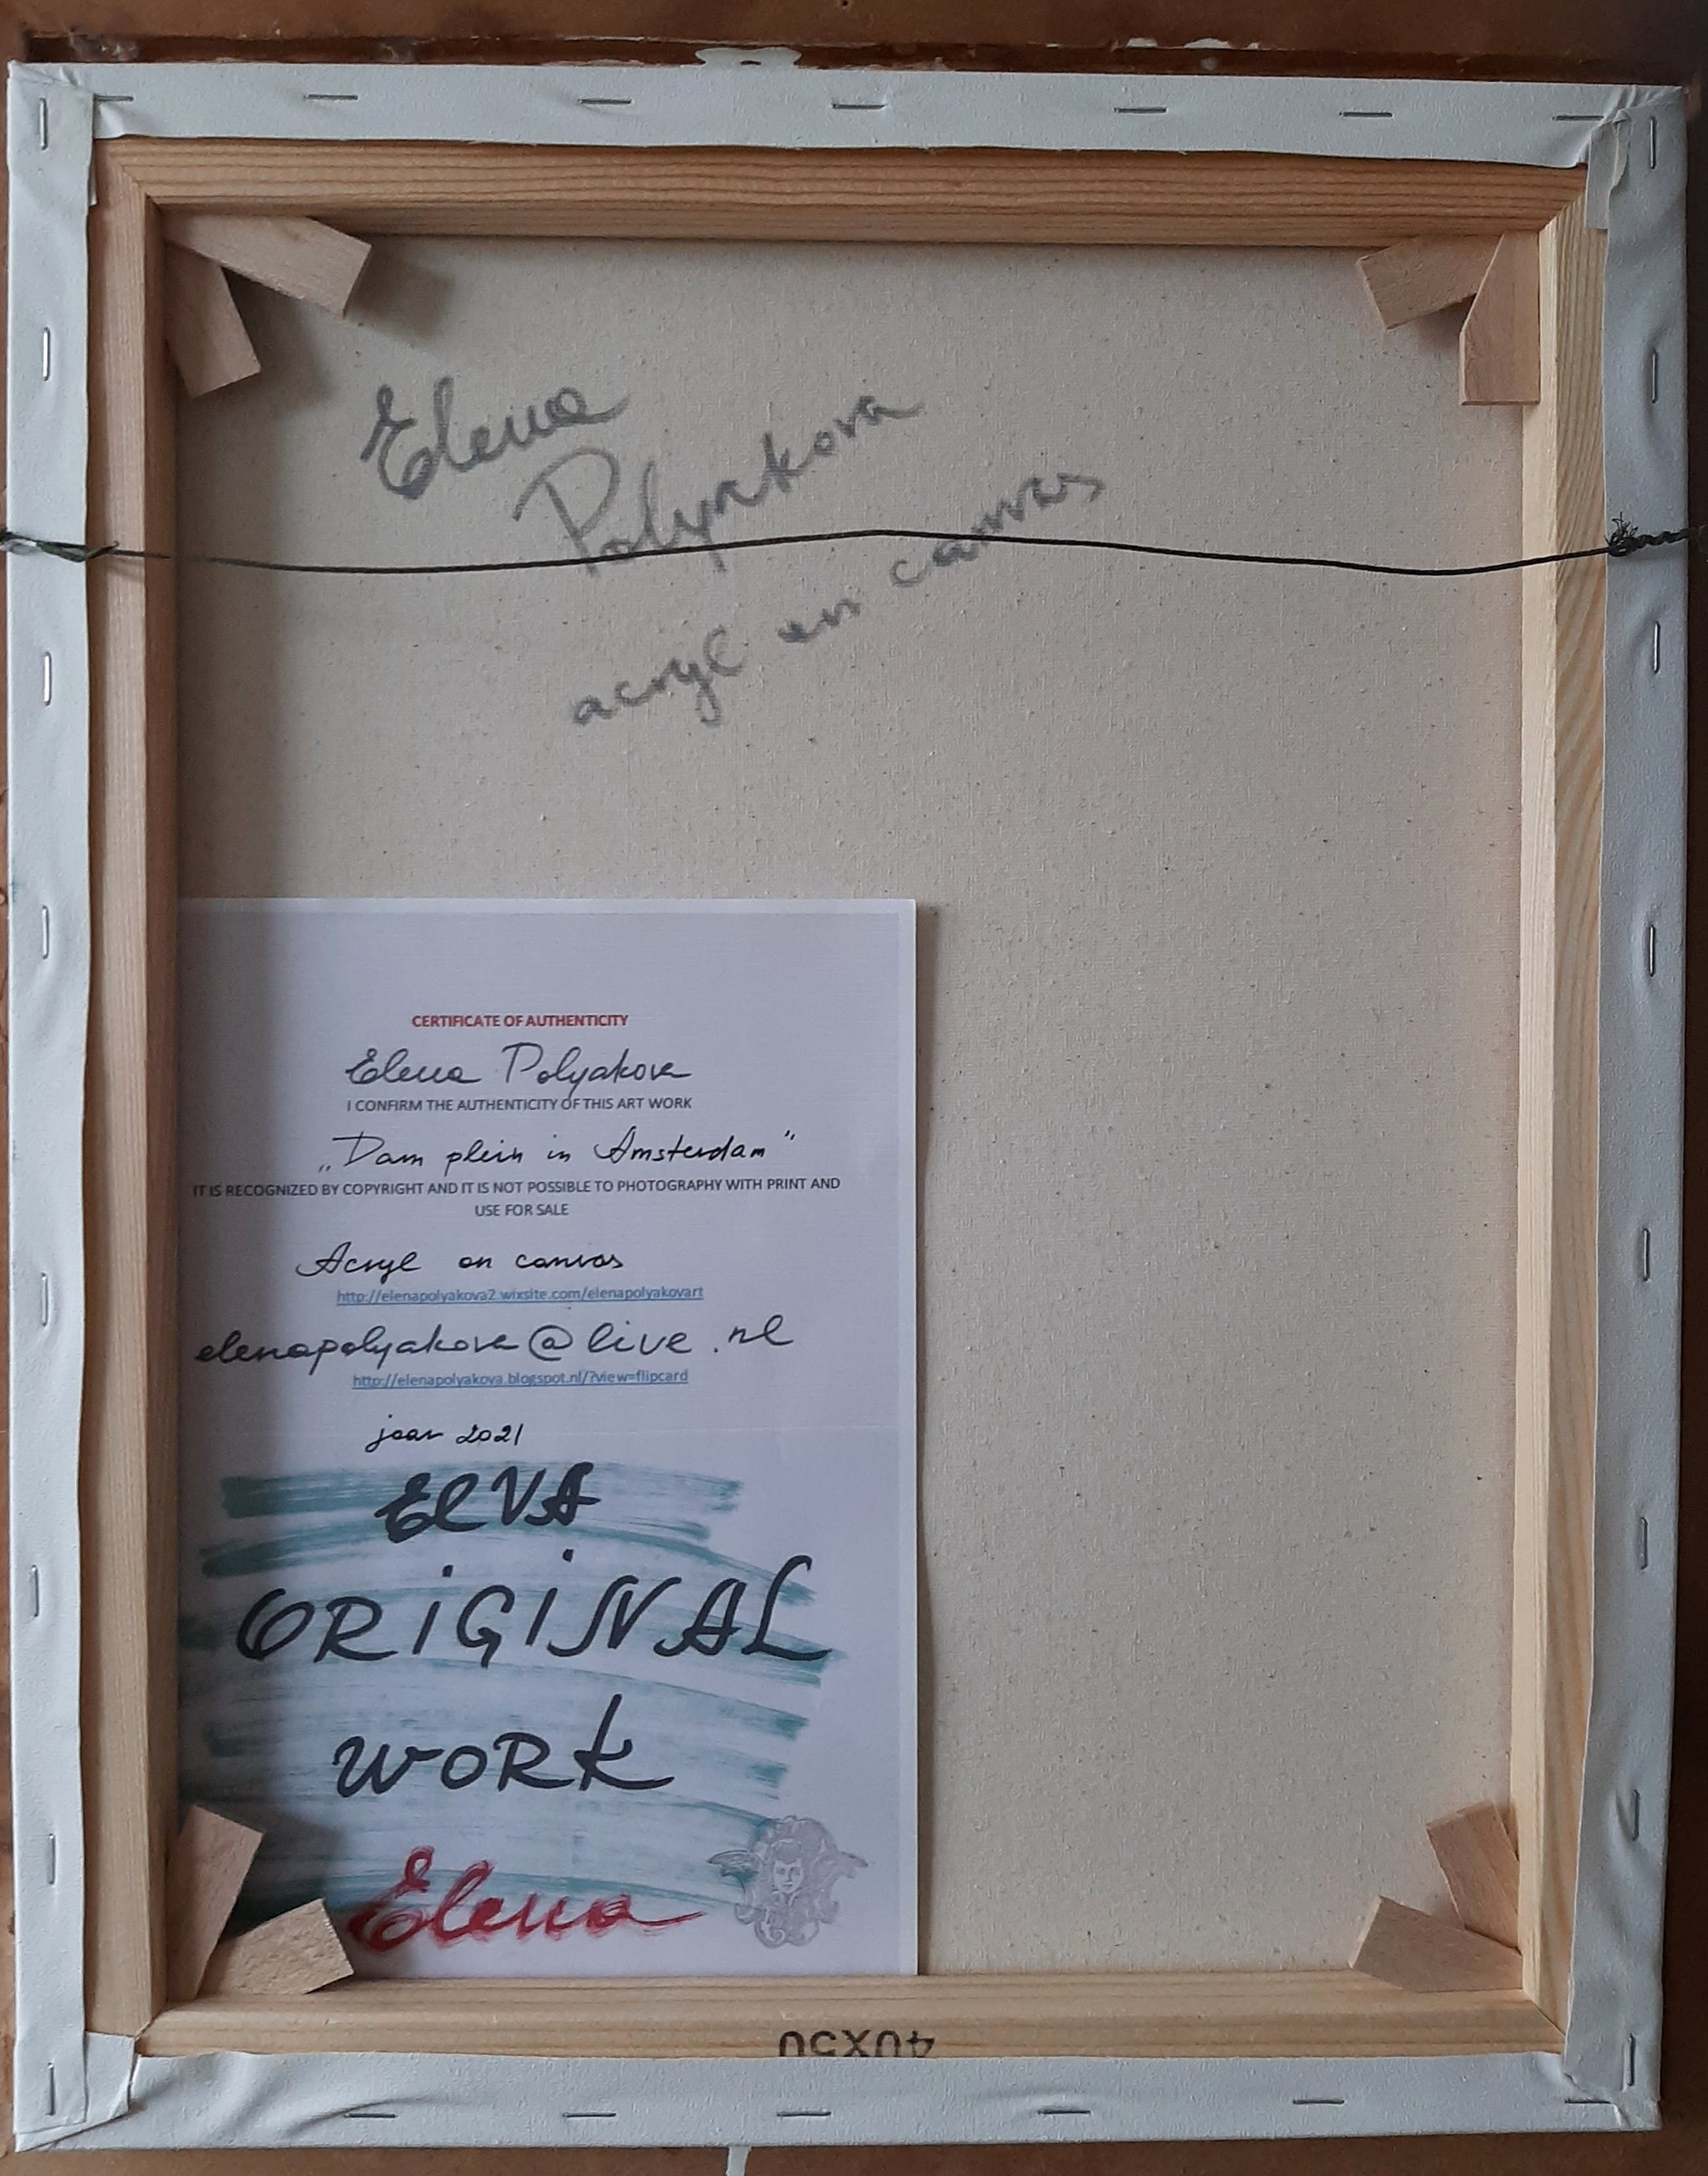 Elena
Polyakova
acryl on canvas
CERTIFICATE OF AUTHENTICITY
Elena Polyakova
I CONFIRM THE AUTHENTICITY OF THIS ART WORK
„Dam plein in Amsterdam"
IT IS RECOGNIZED BY COPYRIGHT AND IT IS NOT POSSIBLE TO PHOTOGRAPHY WITH PRINT AND
USE FOR SALE
Acryl on canvas
http://elenapolyakova2.wixsite.com/elenapolyakovart
elenapolyakova@live.nl
http://elenapolyakova.blogspot.nl/?view=flipcard
jaar 2021
ELVA
ORIGINAL
WORK
Elena
40X50